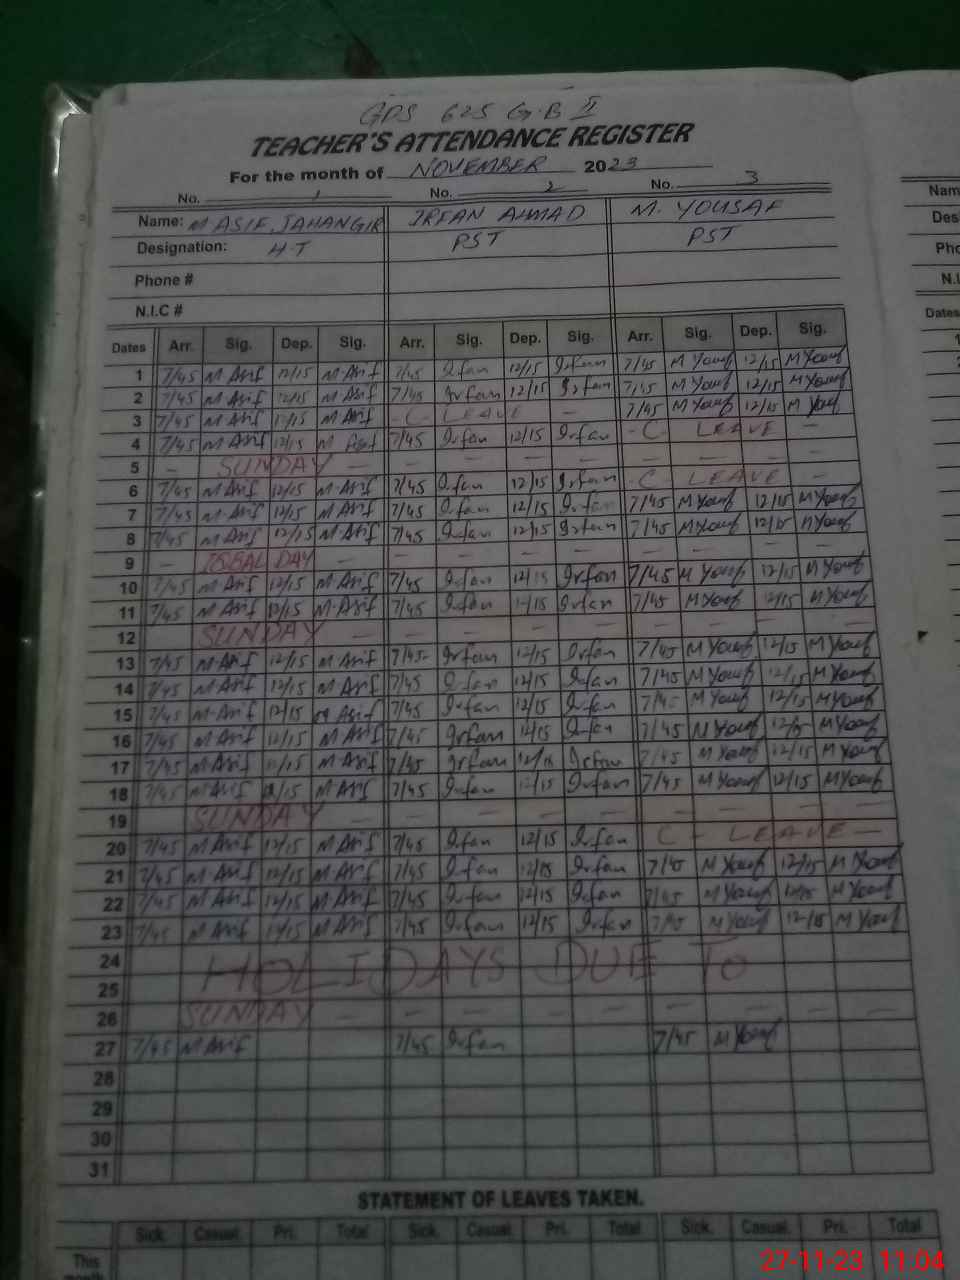 GPS 625 G.B II
TEACHER'S ATTENDANCE REGISTER
For the month of NOVEMBER 2023
No. 1 No. 2 No. 3
Name: M ASIF JAHANGIR IRFAN AHMAD M. YOUSAF
Designation: H.T PST PST
Phone #
N.I.C #
Dates Arr. Sig. Dep. Sig. Arr. Sig. Dep. Sig. Arr. Sig. Dep. Sig.
1 7/45 M Asif 12/15 M Asif 7/45 Irfan 12/15 Irfan 7/45 M Yousf 12/15 M Yousf
2 7/45 M Asif 12/15 M Asif 7/45 Irfan 12/15 Irfan 7/45 M Yousf 12/15 M Yousf
3 7/45 M Asif 12/15 M Asif - C - LEAVE - 7/45 M Yousf 12/15 M Yousf
4 7/45 M Asif 12/15 M Asif 7/45 Irfan 12/15 Irfan - C - LEAVE -
5 - SUNDAY - - - - - - - - -
6 7/45 M Asif 12/15 M Asif 7/45 Irfan 12/15 Irfan - C - LEAVE -
7 7/45 M Asif 12/15 M Asif 7/45 Irfan 12/15 Irfan 7/45 M Yousf 12/15 M Yousf
8 7/45 M Asif 12/15 M Asif 7/45 Irfan 12/15 Irfan 7/45 M Yousf 12/15 M Yousf
9 - IQBAL DAY - - - - - - - - -
10 7/45 M Asif 12/15 M Asif 7/45 Irfan 12/15 Irfan 7/45 M Yousf 12/15 M Yousf
11 7/45 M Asif 12/15 M Asif 7/45 Irfan 12/15 Irfan 7/45 M Yousf 12/15 M Yousf
12 SUNDAY - - - - - - - - -
13 7/45 M Asif 12/15 M Asif 7/45 Irfan 12/15 Irfan 7/45 M Yousf 12/15 M Yousf
14 7/45 M Asif 12/15 M Asif 7/45 Irfan 12/15 Irfan 7/45 M Yousf 12/15 M Yousf
15 7/45 M Asif 12/15 M Asif 7/45 Irfan 12/15 Irfan 7/45 M Yousf 12/15 M Yousf
16 7/45 M Asif 12/15 M Asif 7/45 Irfan 12/15 Irfan 7/45 M Yousf 12/15 M Yousf
17 7/45 M Asif 12/15 M Asif 7/45 Irfan 12/15 Irfan 7/45 M Yousf 12/15 M Yousf
18 7/45 M Asif 12/15 M Asif 7/45 Irfan 12/15 Irfan 7/45 M Yousf 12/15 M Yousf
19 SUNDAY - - - - - - - - -
20 7/45 M Asif 12/15 M Asif 7/45 Irfan 12/15 Irfan C - LEAVE -
21 7/45 M Asif 12/15 M Asif 7/45 Irfan 12/15 Irfan 7/45 M Yousf 12/15 M Yousf
22 7/45 M Asif 12/15 M Asif 7/45 Irfan 12/15 Irfan 7/45 M Yousf 12/15 M Yousf
23 7/45 M Asif 12/15 M Asif 7/45 Irfan 12/15 Irfan 7/45 M Yousf 12/15 M Yousf
24 HOLIDAYS DUE TO
25
26 SUNDAY - - - - - - - - -
27 7/45 M Asif 7/45 Irfan 7/45 M Yousf
28
29
30
31
STATEMENT OF LEAVES TAKEN.
Sick. Casual. Pri. Total Sick. Casual. Pri. Total Sick. Casual. Pri. Total
This
month
27-11-23 11:04